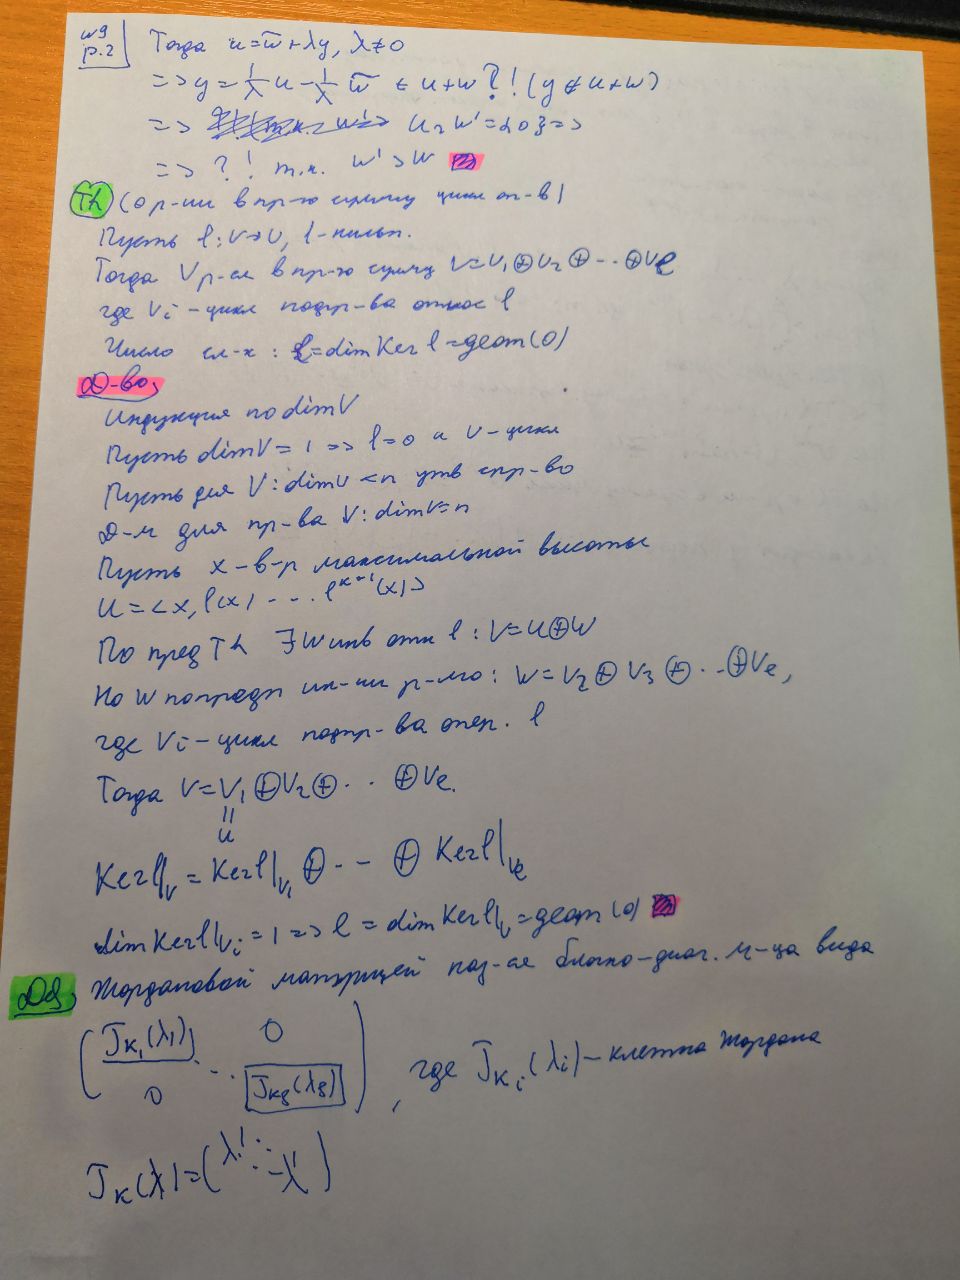 w9
p.2
Тогда u = w̄ + λy, λ≠0
=> y = 1/λ u - 1/λ w̄ ∈ u+w ?! (y ∉ u+w)
=> u ∩ w' = {0} =>
=> ?! т.к. w' > w
Th (о р-ии в пр-ю сумму цикл п-в)
Пусть l: V→V, l-нильп.
Тогда V р-ся в пр-ю сумму V = V₁⊕V₂⊕...⊕Vₑ
где Vᵢ - цикл подпр-ва относ l
Число сл-х: l = dim Ker l = geom(0)
Д-во,
Индукция по dim V
Пусть dim V = 1 => l = 0 и V - цикл
Пусть для V: dim V < n утв спр-во
Д-м для пр-ва V: dim V = n
Пусть x - в-р максимальной высоты
U = <x, l(x) ... l^(k-1)(x)>
По пред Th ∃ W инв отн l: V = U⊕W
Но W по предп ин-ии р-мо: W = V₂⊕V₃⊕...⊕Vₑ,
где Vᵢ - цикл подпр-ва опер. l
Тогда V = V₁⊕V₂⊕...⊕Vₑ.
||
u
Ker l|ᵥ = Ker l|V₁ ⊕ -- ⊕ Ker l|Vₑ
dim Ker l|Vᵢ = 1 => l = dim Ker l|ᵥ = geom(0)
Df, Жордановой матрицей наз-ся блочно-диаг. м-ца вида
( Jk₁(λ₁) 0
0 ... Jks(λs) ) , где Jkᵢ(λᵢ) - клетка Жордана
Jk(λ) = ( λ 1 ... λ )